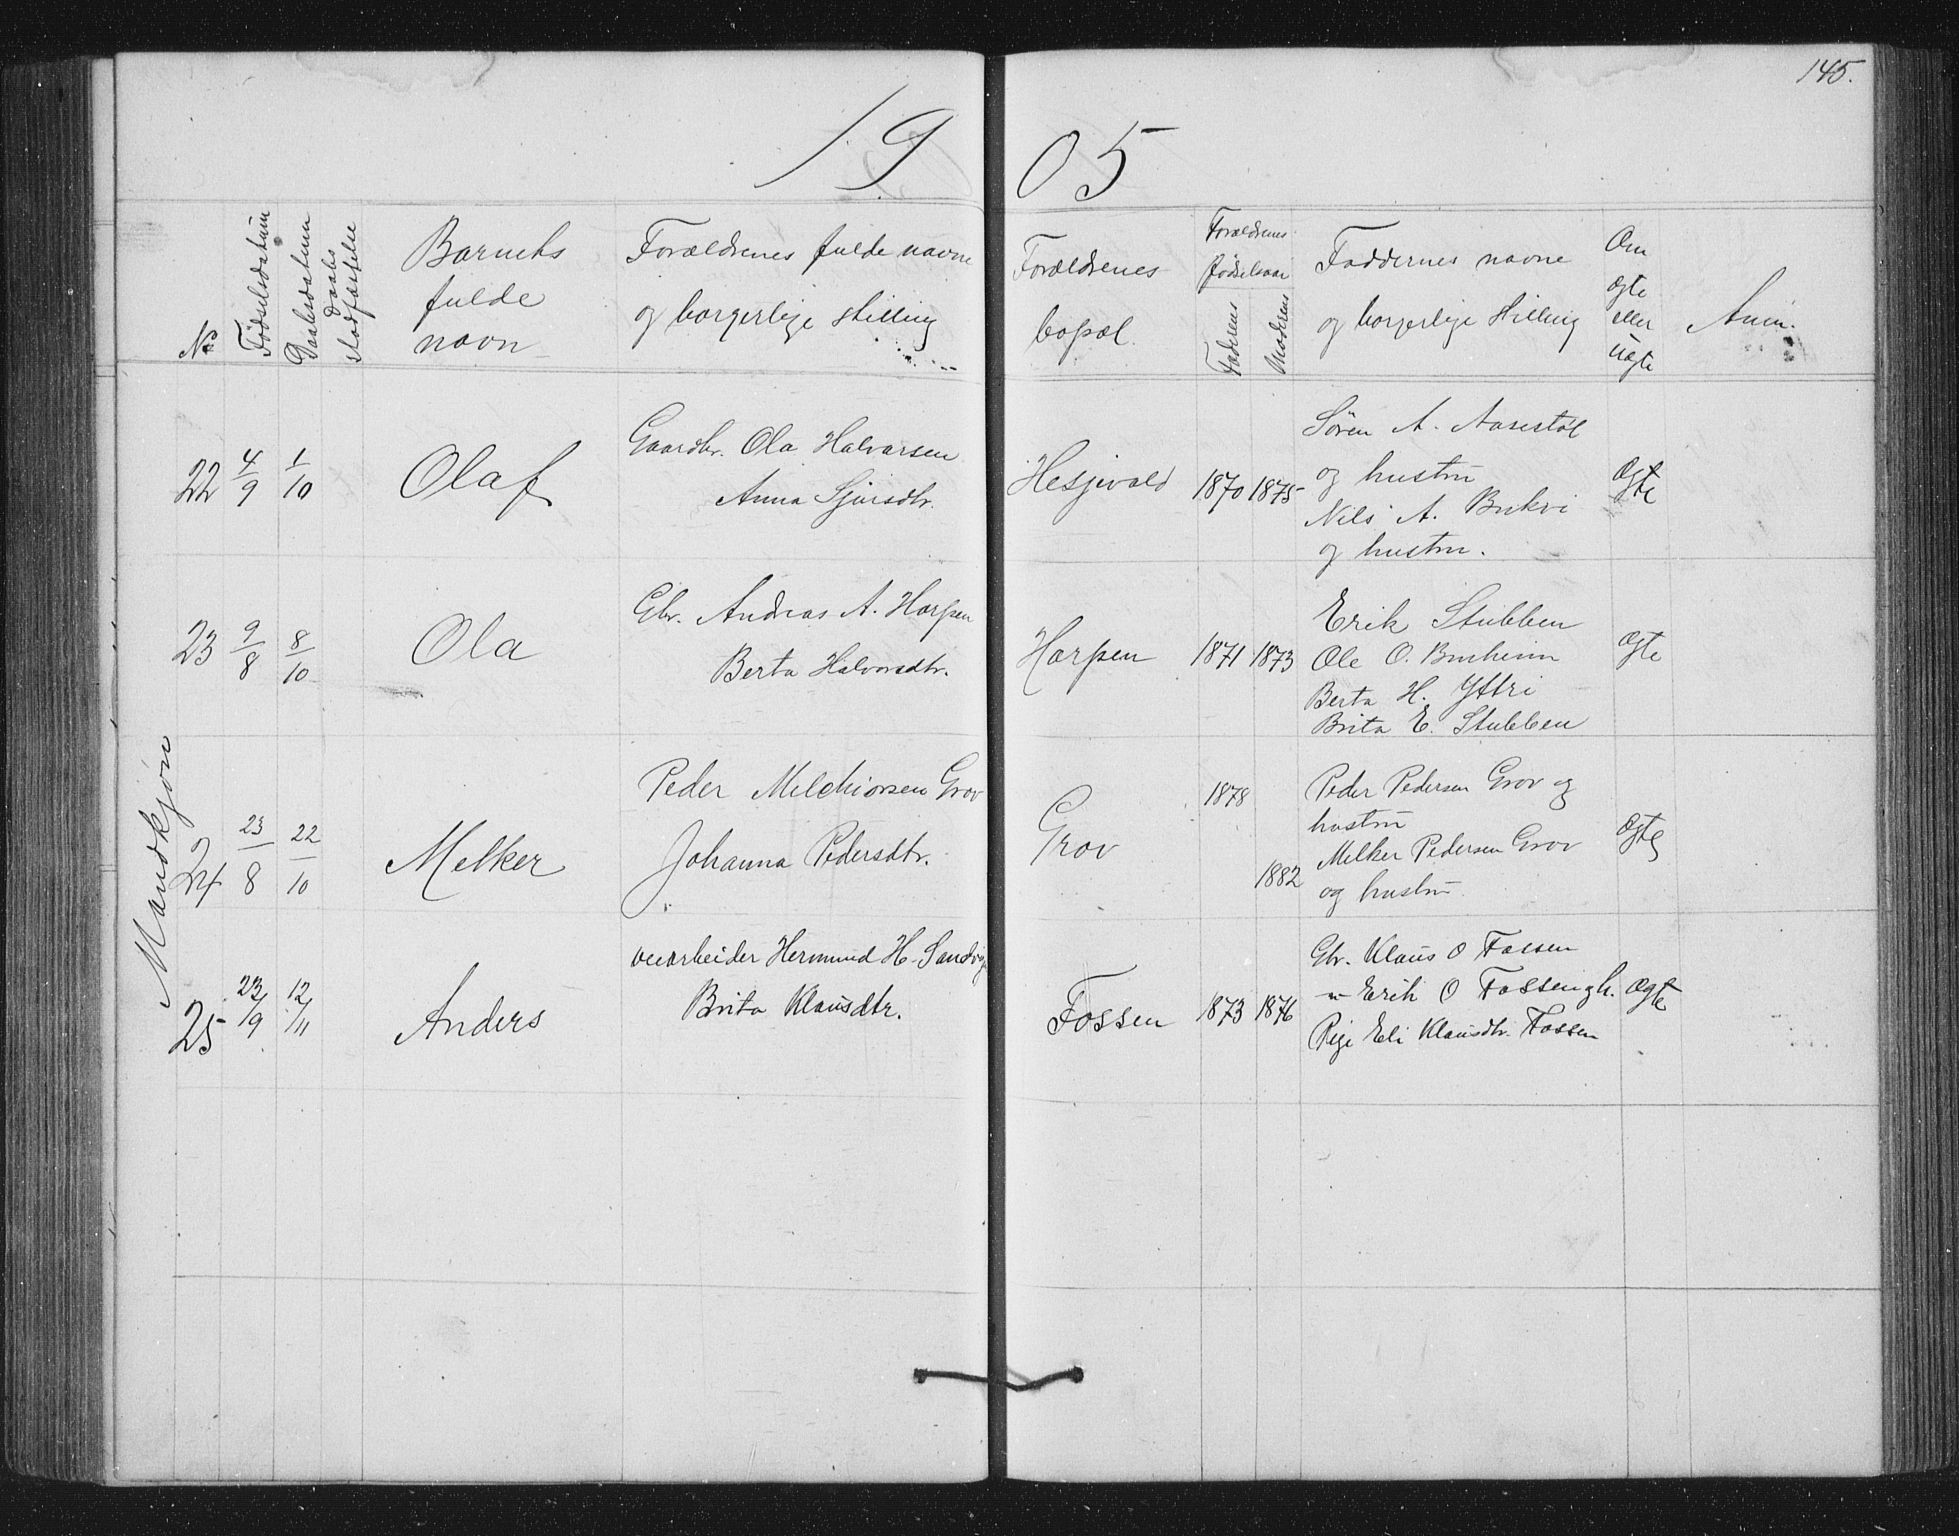 145.
19 05
No
Fødselsdatum
Daabsdatum
Daabs
stadfæstelse
Barnets
fulde
navn
Forældrenes fulde navne
og borgerlige stilling
Forældrenes
bopæl.
Forældrenes
fødselsaar
Faderens
Moderens
Faddernes navne
og borgerlige stilling
Om
ægte
eller
uægte
Anm.
Mandkjøn
22 4/9 1/10 Olaf
Gaardbr. Ola Halvorsen
Anna Sjursdtr.
Hesjevold 1870 1875
Søren A. Aasestøl
og hustru
Nils A. Bukvi
og hustru.
Ægte
23 9/8 8/10 Ola
Gbr. Andreas A. Harpen
Berta Halvorsdtr.
Harpen 1871 1873
Erik Stubben
Ole O. Buheim
Berta H. Yttri
Brita E. Stubben
Ægte
24 23/8 22/10 Melker
Peder Melchiorsen Grov
Johanna Pedersdtr.
Grov 1878 1882
Peder Pedersen Grov og
hustru
Melker Pedersen Grov
og hustru
Ægte
25 23/9 12/11 Anders
veiarbeider Hermund H. Sandvig
Brita Klausdtr.
Fossen 1873 1876
Gbr. Klaus O Fossen
" Erik O Fossengh.
Pige Eli Klausdtr. Fossen
Ægte